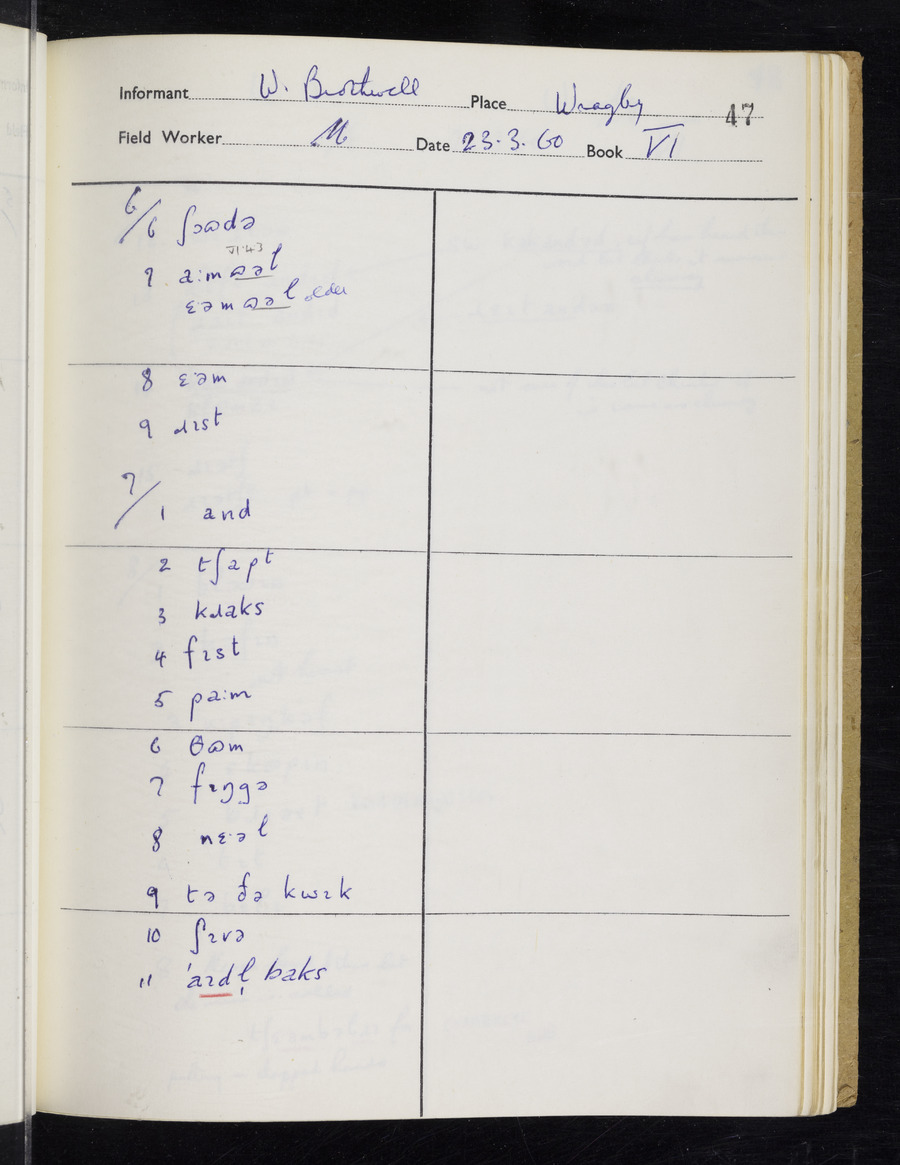 Informant W. Brothwell Place Wragby 47
Field Worker M Date 23.3.60 Book VI
6/6 ʃɔɷdə
VI.43
7 a:mɷəl
ɛ·əmɷəl older
8 ɛ·əm
9 ɹɪst
7/1 and
2 tʃapt
3 kɹaks
4 fɪst
5 pa:m
6 θɷm
7 fɪŋgə
8 nɛ·əl
9 tə ðə kwɪk
10 ʃɪvə
11 ˈaɪdl̩ baks